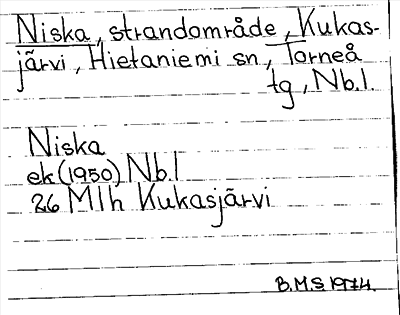 Niska, strandområde, Kukas-
järvi, Hietaniemi sn, Torneå
tg, Nb.l.
Niska
ek (1950) Nb.l
26 Mlh Kukasjärvi
B.M.S 1974.